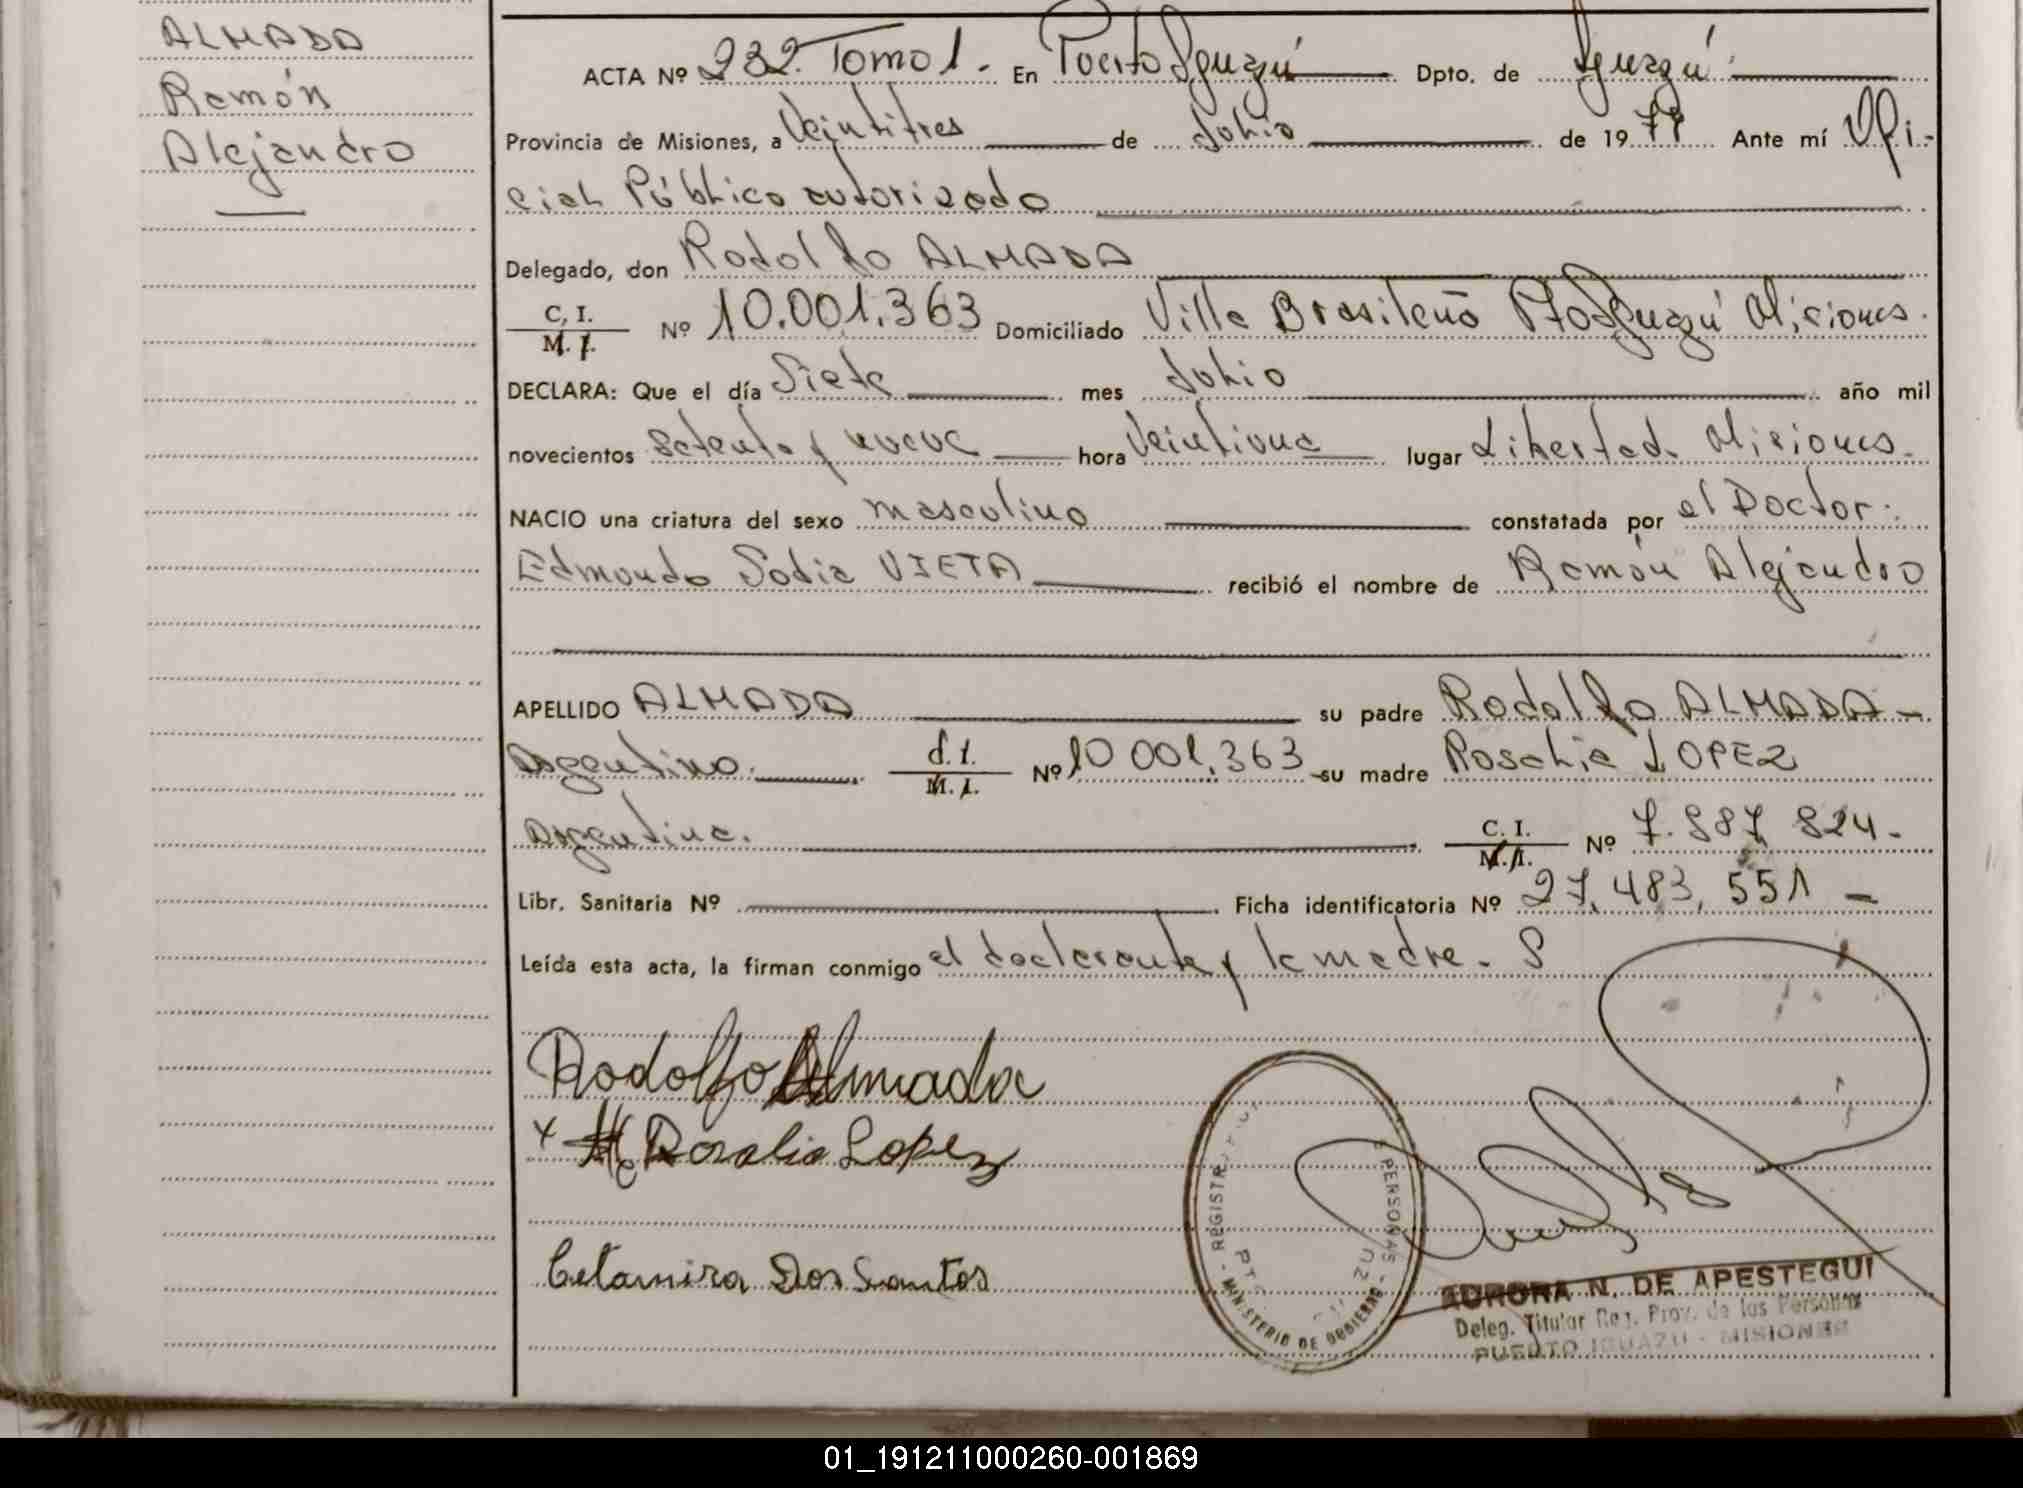 ALMADA
Ramón
Alejandro
ACTA Nº 232. Tomo 1. - En Puerto Iguazú Dpto. de Iguazú
Provincia de Misiones, a Veintitres de Julio de 1979 Ante mí Ofi-
cial Público autorizado
Delegado, don Rodolfo ALMADA
C. I.
M. I. Nº 10.001.363 Domiciliado Villa Brasileña Pto Iguazú Misiones.
DECLARA: Que el día Siete mes Julio año mil
novecientos setenta y nueve hora Veintiuna lugar Libertad. Misiones.
NACIO una criatura del sexo masculino constatada por el Doctor:
Edmundo Sodia VIETA recibió el nombre de Ramón Alejandro
APELLIDO ALMADA su padre Rodolfo ALMADA -
Argentino. d. I.
M. I. Nº 10 001.363 su madre Rosalia LOPEZ
Argentina. C. I.
M. I. Nº 7.987 824 -
Libr. Sanitaria Nº Ficha identificatoria Nº 27.483.551 -
Leída esta acta, la firman conmigo el declarante y la madre. - S
Rodolfo Almada
x Rosalia Lopez
Celamira Dos Santos
REGISTR PERSONAS
MINISTERIO DE GOBIERNO
AURORA N. DE APESTEGUI
Deleg. Titular Reg. Prov. de las Personas
PUERTO IGUAZU - MISIONES
01_191211000260-001869